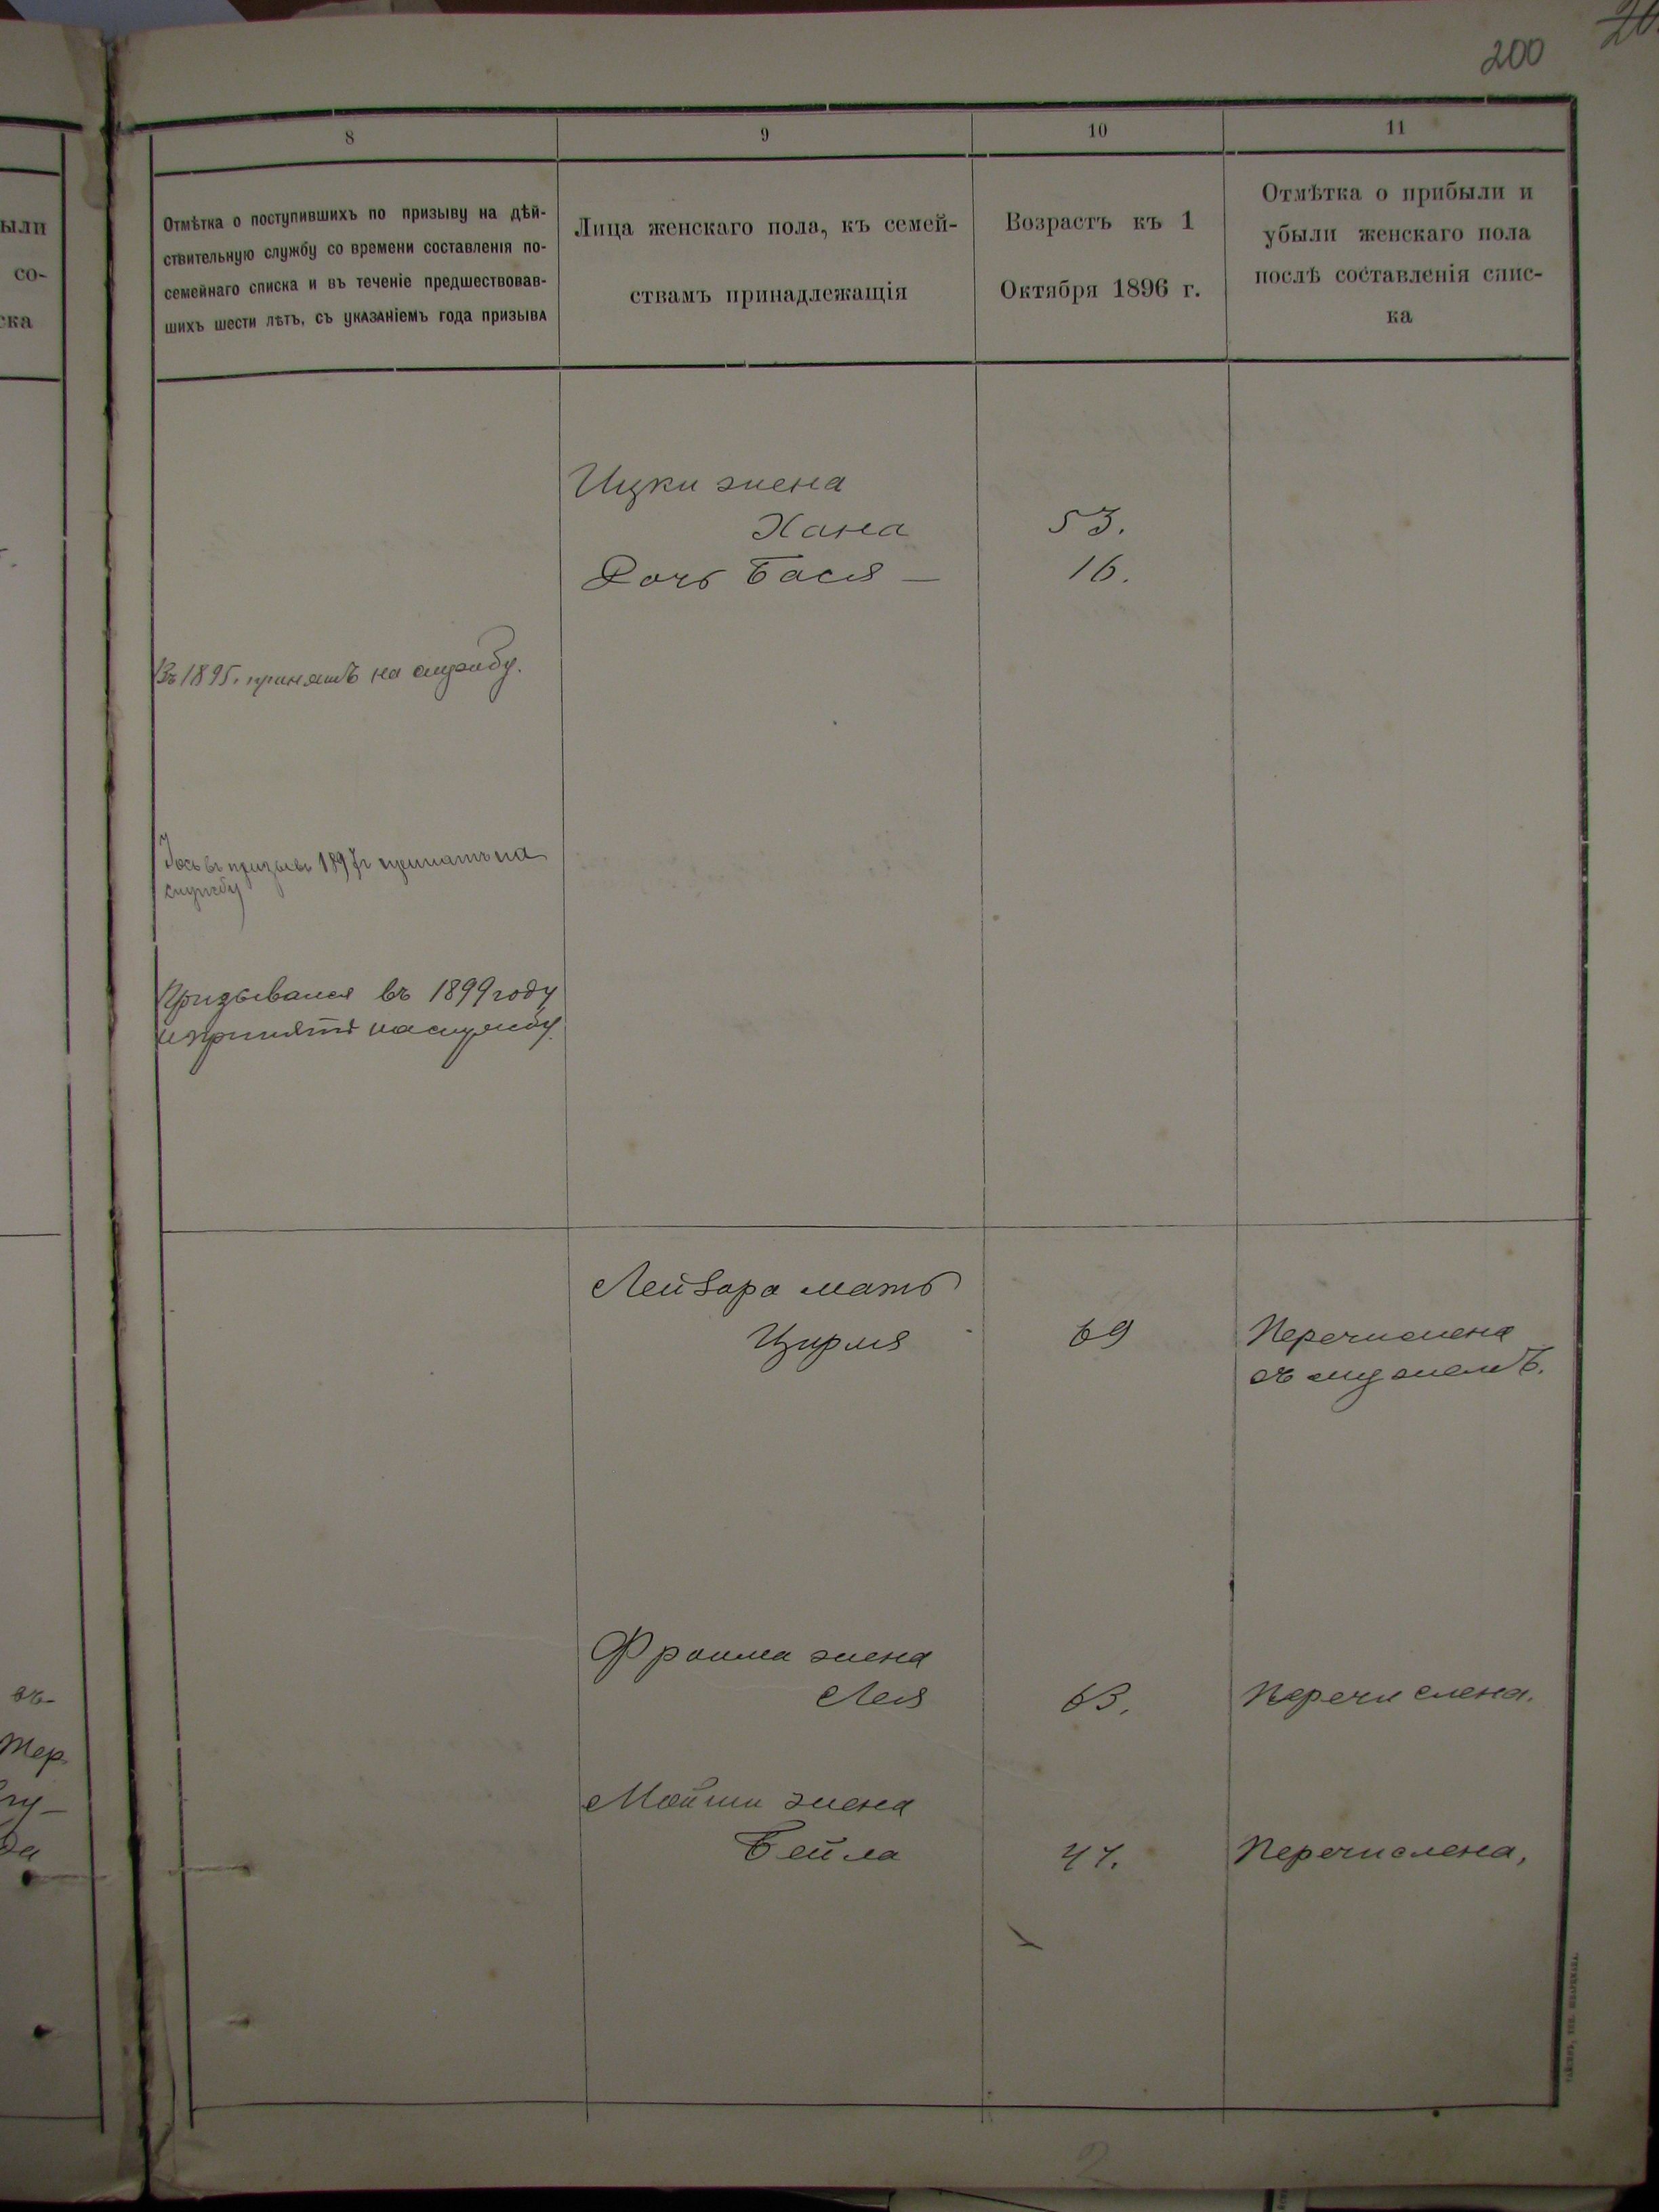 200
20
8
9
10
11
Отмѣтка о поступившихъ по призыву на дѣй-
ствительную службу со времени составленія по-
семейнаго списка и въ теченіе предшествовав-
шихъ шести лѣтъ, съ указаніемъ года призыва
Лица женскаго пола, къ семей-
ствамъ принадлежащія
Возрастъ къ 1
Октября 1896 г.
Отмѣтка о прибыли и
убыли женскаго пола
послѣ составленія спис-
ка
ыли
со-
ска
Ицки жена
Хана 53.
Дочь Бася — 16.
Въ 1895. принятъ на службу.
въ призывъ 1897 г принятъ на
службу
Призывался въ 1899 году
и принятъ на службу.
Лейзора мать
Цирля 69 Перечислена
съ мужемъ.
Фроима жена
Лея 63. Перечислена.
Мошки жена
Бейла 47. Перечислена,
съ-
тер.
гу-
да